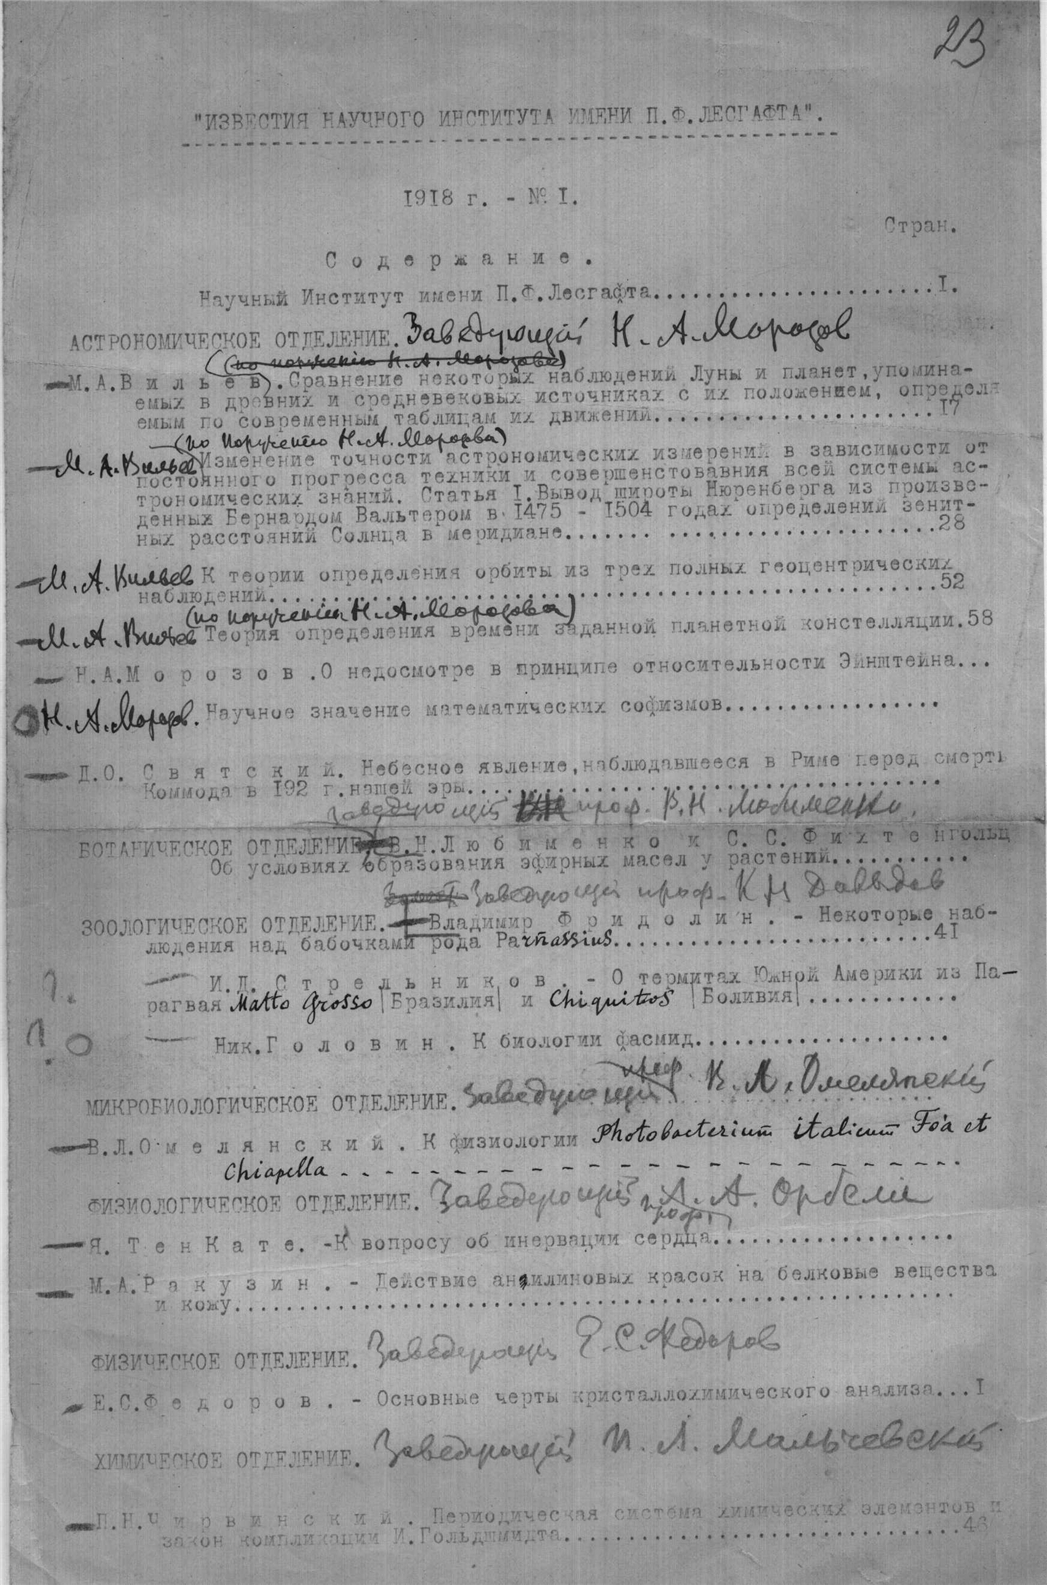 23
"ИЗВЕСТИЯ НАУЧНОГО ИНСТИТУТА ИМЕНИ П.Ф.ЛЕСГАФТА".
1918 г. - № I.
Стран.
Содержание.
Научный Институт имени П.Ф.Лесгафта......................I.
АСТРОНОМИЧЕСКОЕ ОТДЕЛЕНИЕ. Заведующий Н. А. Морозов
(по порученію Н. А. Морозова)
М.А.Вильев.Сравнение некоторых наблюдений Луны и планет,упомина-
емых в древних и средневековых источниках с их положением, определя
емым по современным таблицам их движений......................17
(по порученію Н.А.Морозова)
М. А. Вильев Изменение точности астрономических измерений в зависимости от
постоянного прогресса техники и совершенстовавния всей системы ас-
трономических знаний. Статья I.Вывод широты Нюренберга из произве-
денных Бернардом Вальтером в 1475 - 1504 годах определений зенит-
ных расстояний Солнца в меридиане....... .....................28
М. А. Вильев К теории определения орбиты из трех полных геоцентрических
наблюдений....................................................52
(по порученію Н. А. Морозова)
М. А. Вильев Теория определения времени заданной планетной констелляции.58
Н.А.Морозов.О недосмотре в принципе относительности Эйнштейна...
Н. А. Морозов. Научное значение математических софизмов.................
Д.О. Святский. Небесное явление,наблюдавшееся в Риме перед смерть
Коммода в 192 г.нашей эры.....................................
Заведующій проф. В.Н. Любименко.
БОТАНИЧЕСКОЕ ОТДЕЛЕНИЕ. В.Н.Любименко и С. С. Фихтенгольц
Об условиях образования эфирных масел у растений...........
Заведующій проф. К Н Давыдов
ЗООЛОГИЧЕСКОЕ ОТДЕЛЕНИЕ. Владимир Фридолин. - Некоторые наб-
людения над бабочками рода Parnassius.........................41
?. И.Д. Стрельников. - О термитах Южной Америки из Па-
рагвая Matto Grosso |Бразилия| и Chiquitos |Боливия|............
?. Ник.Головин. К биологии фасмид....................
МИКРОБИОЛОГИЧЕСКОЕ ОТДЕЛЕНИЕ. Заведующій проф. В. Л. Омелянскій
В.Л.Омелянский. К физиологии Photobacterium italicum Foà et
Chiapella - - - - - - - - - - - - - - - - - - - -
ФИЗИОЛОГИЧЕСКОЕ ОТДЕЛЕНИЕ. Заведующій проф. Л. А. Орбели
Я. ТенКате. -К вопросу об инервации сердца...................
М.А.Ракузин. - Действие анилиновых красок на белковые вещества
и кожу........................................................
ФИЗИЧЕСКОЕ ОТДЕЛЕНИЕ. Заведующій Е. С. Федоров
Е.С.Федоров. - Основные черты кристаллохимического анализа...I
ХИМИЧЕСКОЕ ОТДЕЛЕНИЕ. Заведующій П. Л. Мальчевский
П.Н.Чирвинский. Периодическая система химических элементов и
закон компликации И.Гольдшмидта...............................46